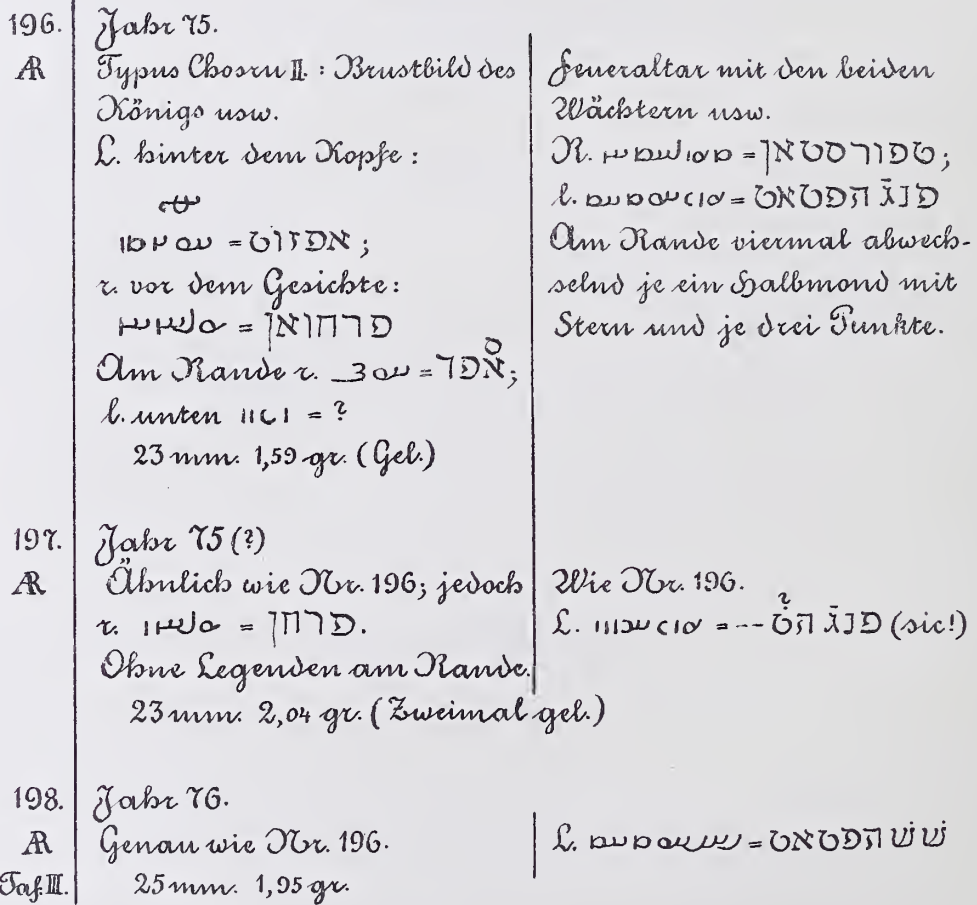 196. Jahr 75.
AR Typus Chosru II. : Brustbild des
Königs usw.
L. hinter dem Kopfe :
= אפזוט ;
r. vor dem Gesichte :
= פרחואן
Am Rande r. = אפד ;
l. unten = ?
23 mm. 1,59 gr. (Gel.)
Feueraltar mit den beiden
Wächtern usw.
R. = טפורסטאן ;
l. = פנג̄ הפטאט
Am Rande viermal abwech-
selnd je ein Halbmond mit
Stern und je drei Punkte.
197. Jahr 75 (?)
AR Ähnlich wie Nr. 196; jedoch
r. = פרחן.
Ohne Legenden am Rande.
23 mm. 2,04 gr. (Zweimal gel.)
Wie Nr. 196.
L. = -- פנג̄ הט (sic!)
198. Jahr 76.
AR Genau wie Nr. 196.
Taf. III. 25 mm. 1,95 gr.
L. = שש הפטאט